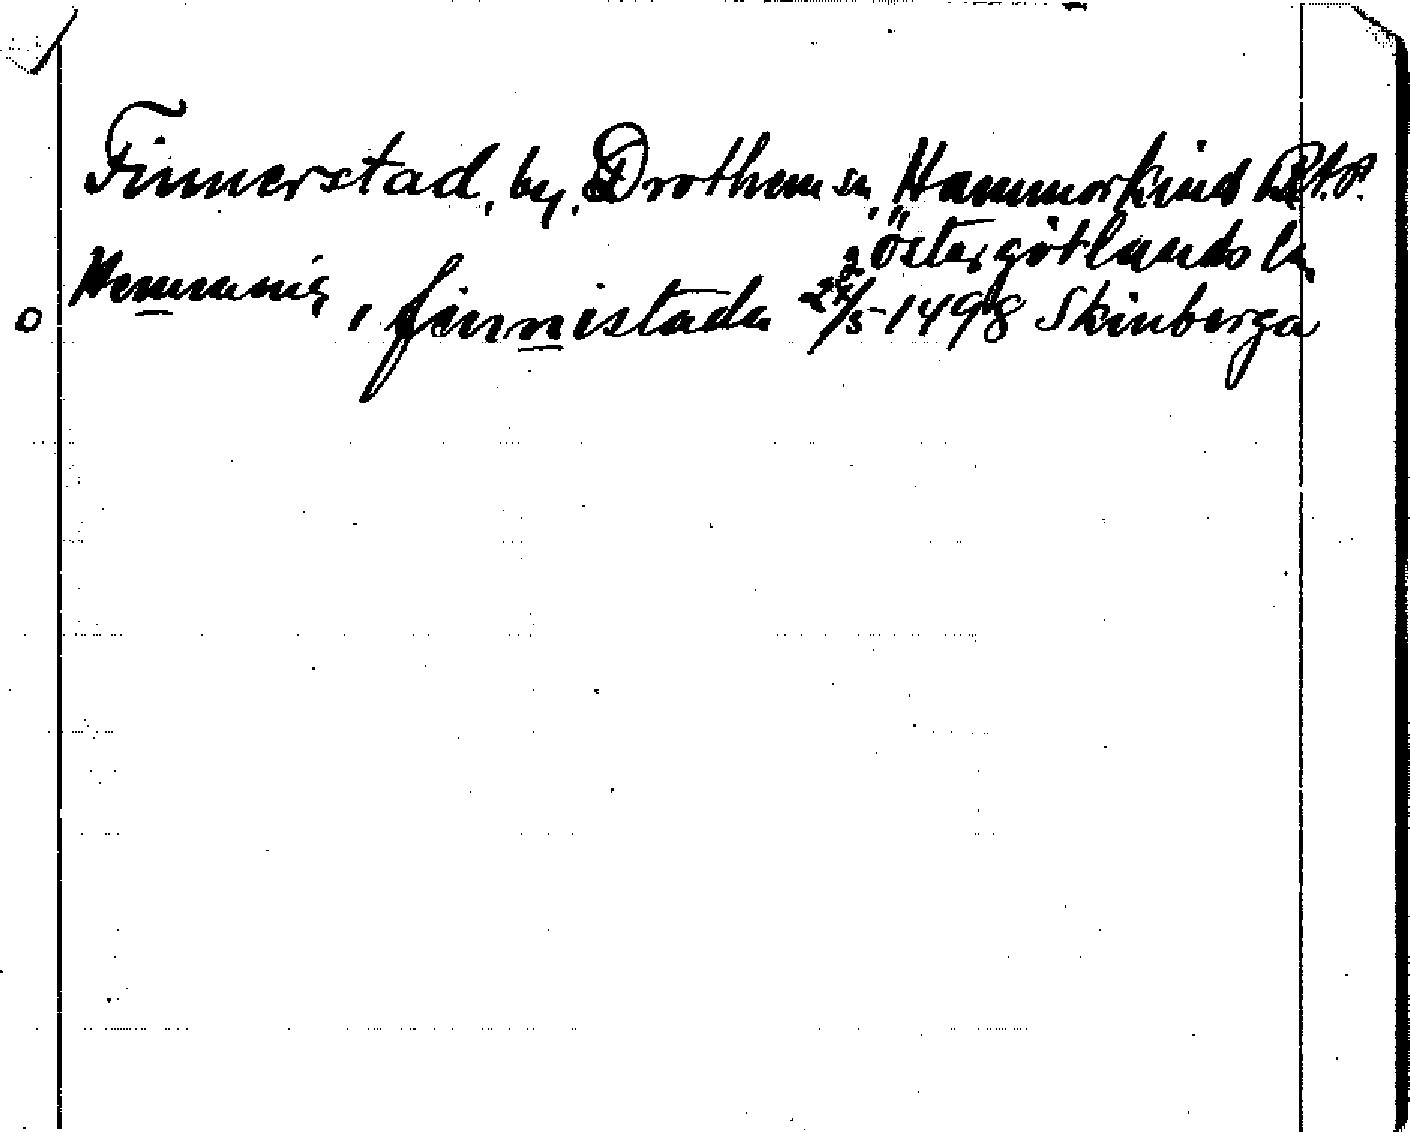 Finnerstad, by, Drothem sn, Hammorkind hd
Östergötlands län
Hemming i finnistada 24/5 1498 Skinberga